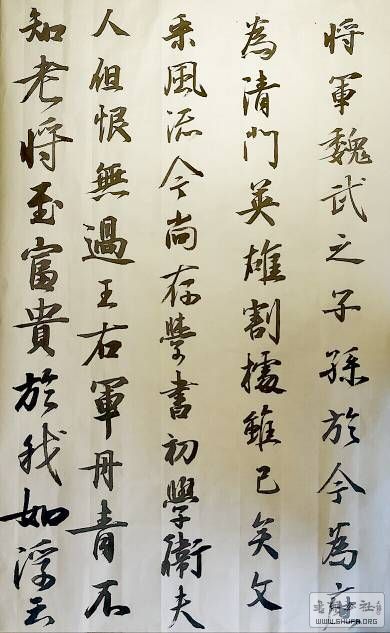 将軍魏武之子孫於今為庶
為清門英雄割據雖已矣文
采風流今尚存學書初學衛夫
人但恨無過王右軍丹青不
知老将至富貴於我如浮云
WWW.SHUFA.ORG